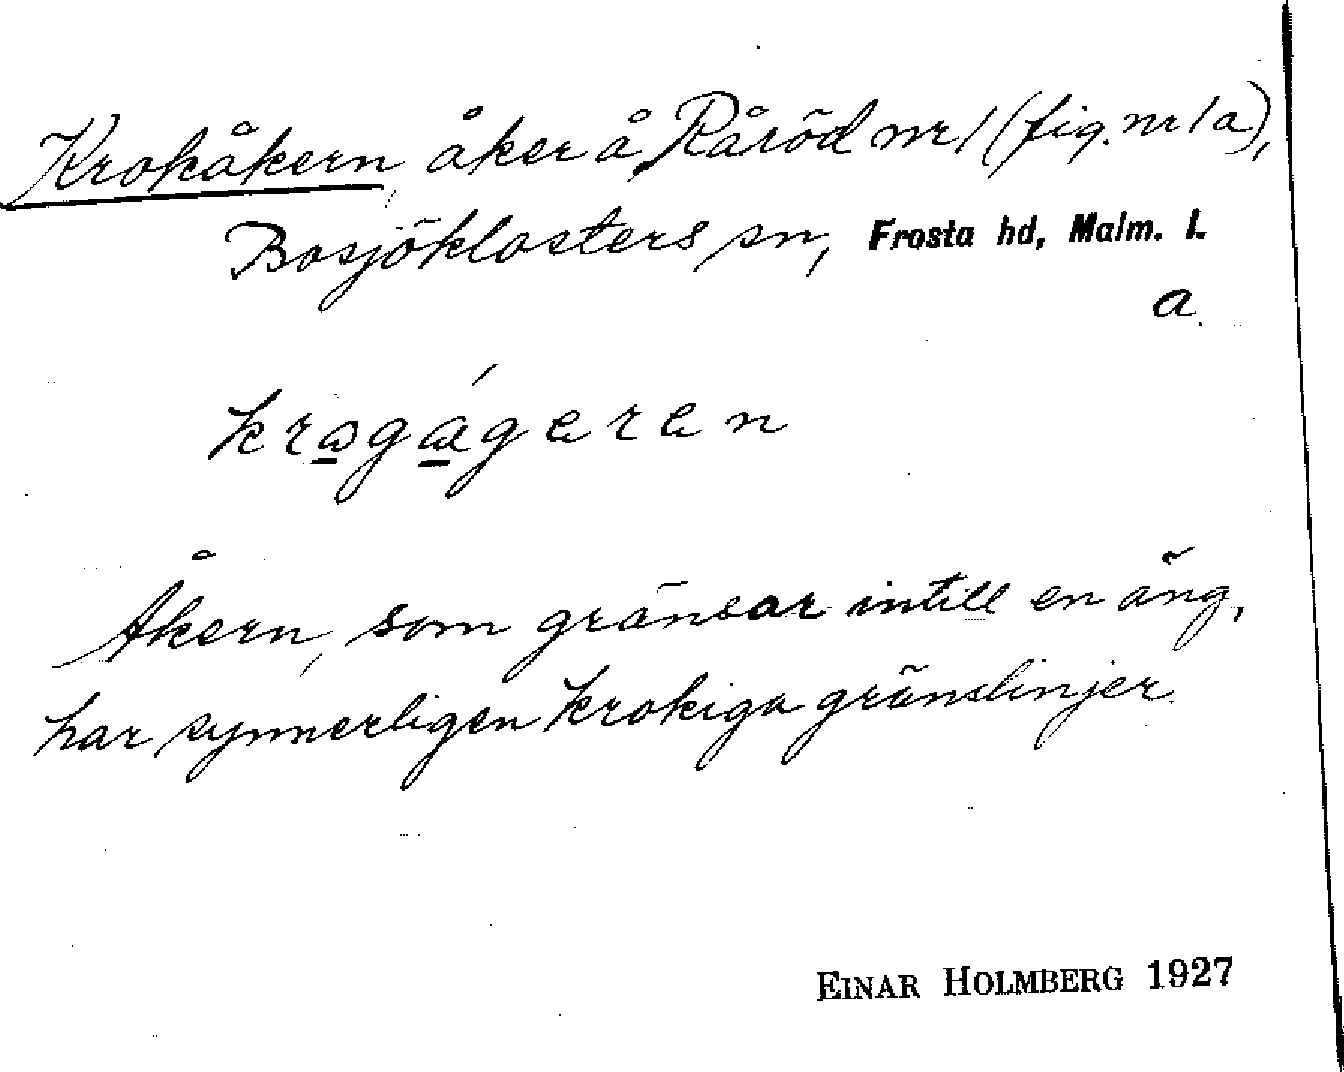 Krokåkern, åker å Råröd nr 1 (fig. nr 1 a),
Bosjöklosters sn, Frosta hd, Malm. l.
a.
Åkern, som gränsar intill en äng,
har synnerligen krokiga gränslinjer.
EINAR HOLMBERG 1927